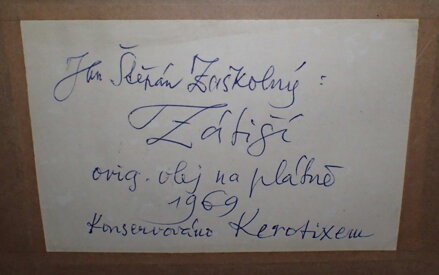 Jan Štěpán Zaškolný:
Zátiší
orig. olej na plátně
1969
Konservováno Kerotixem